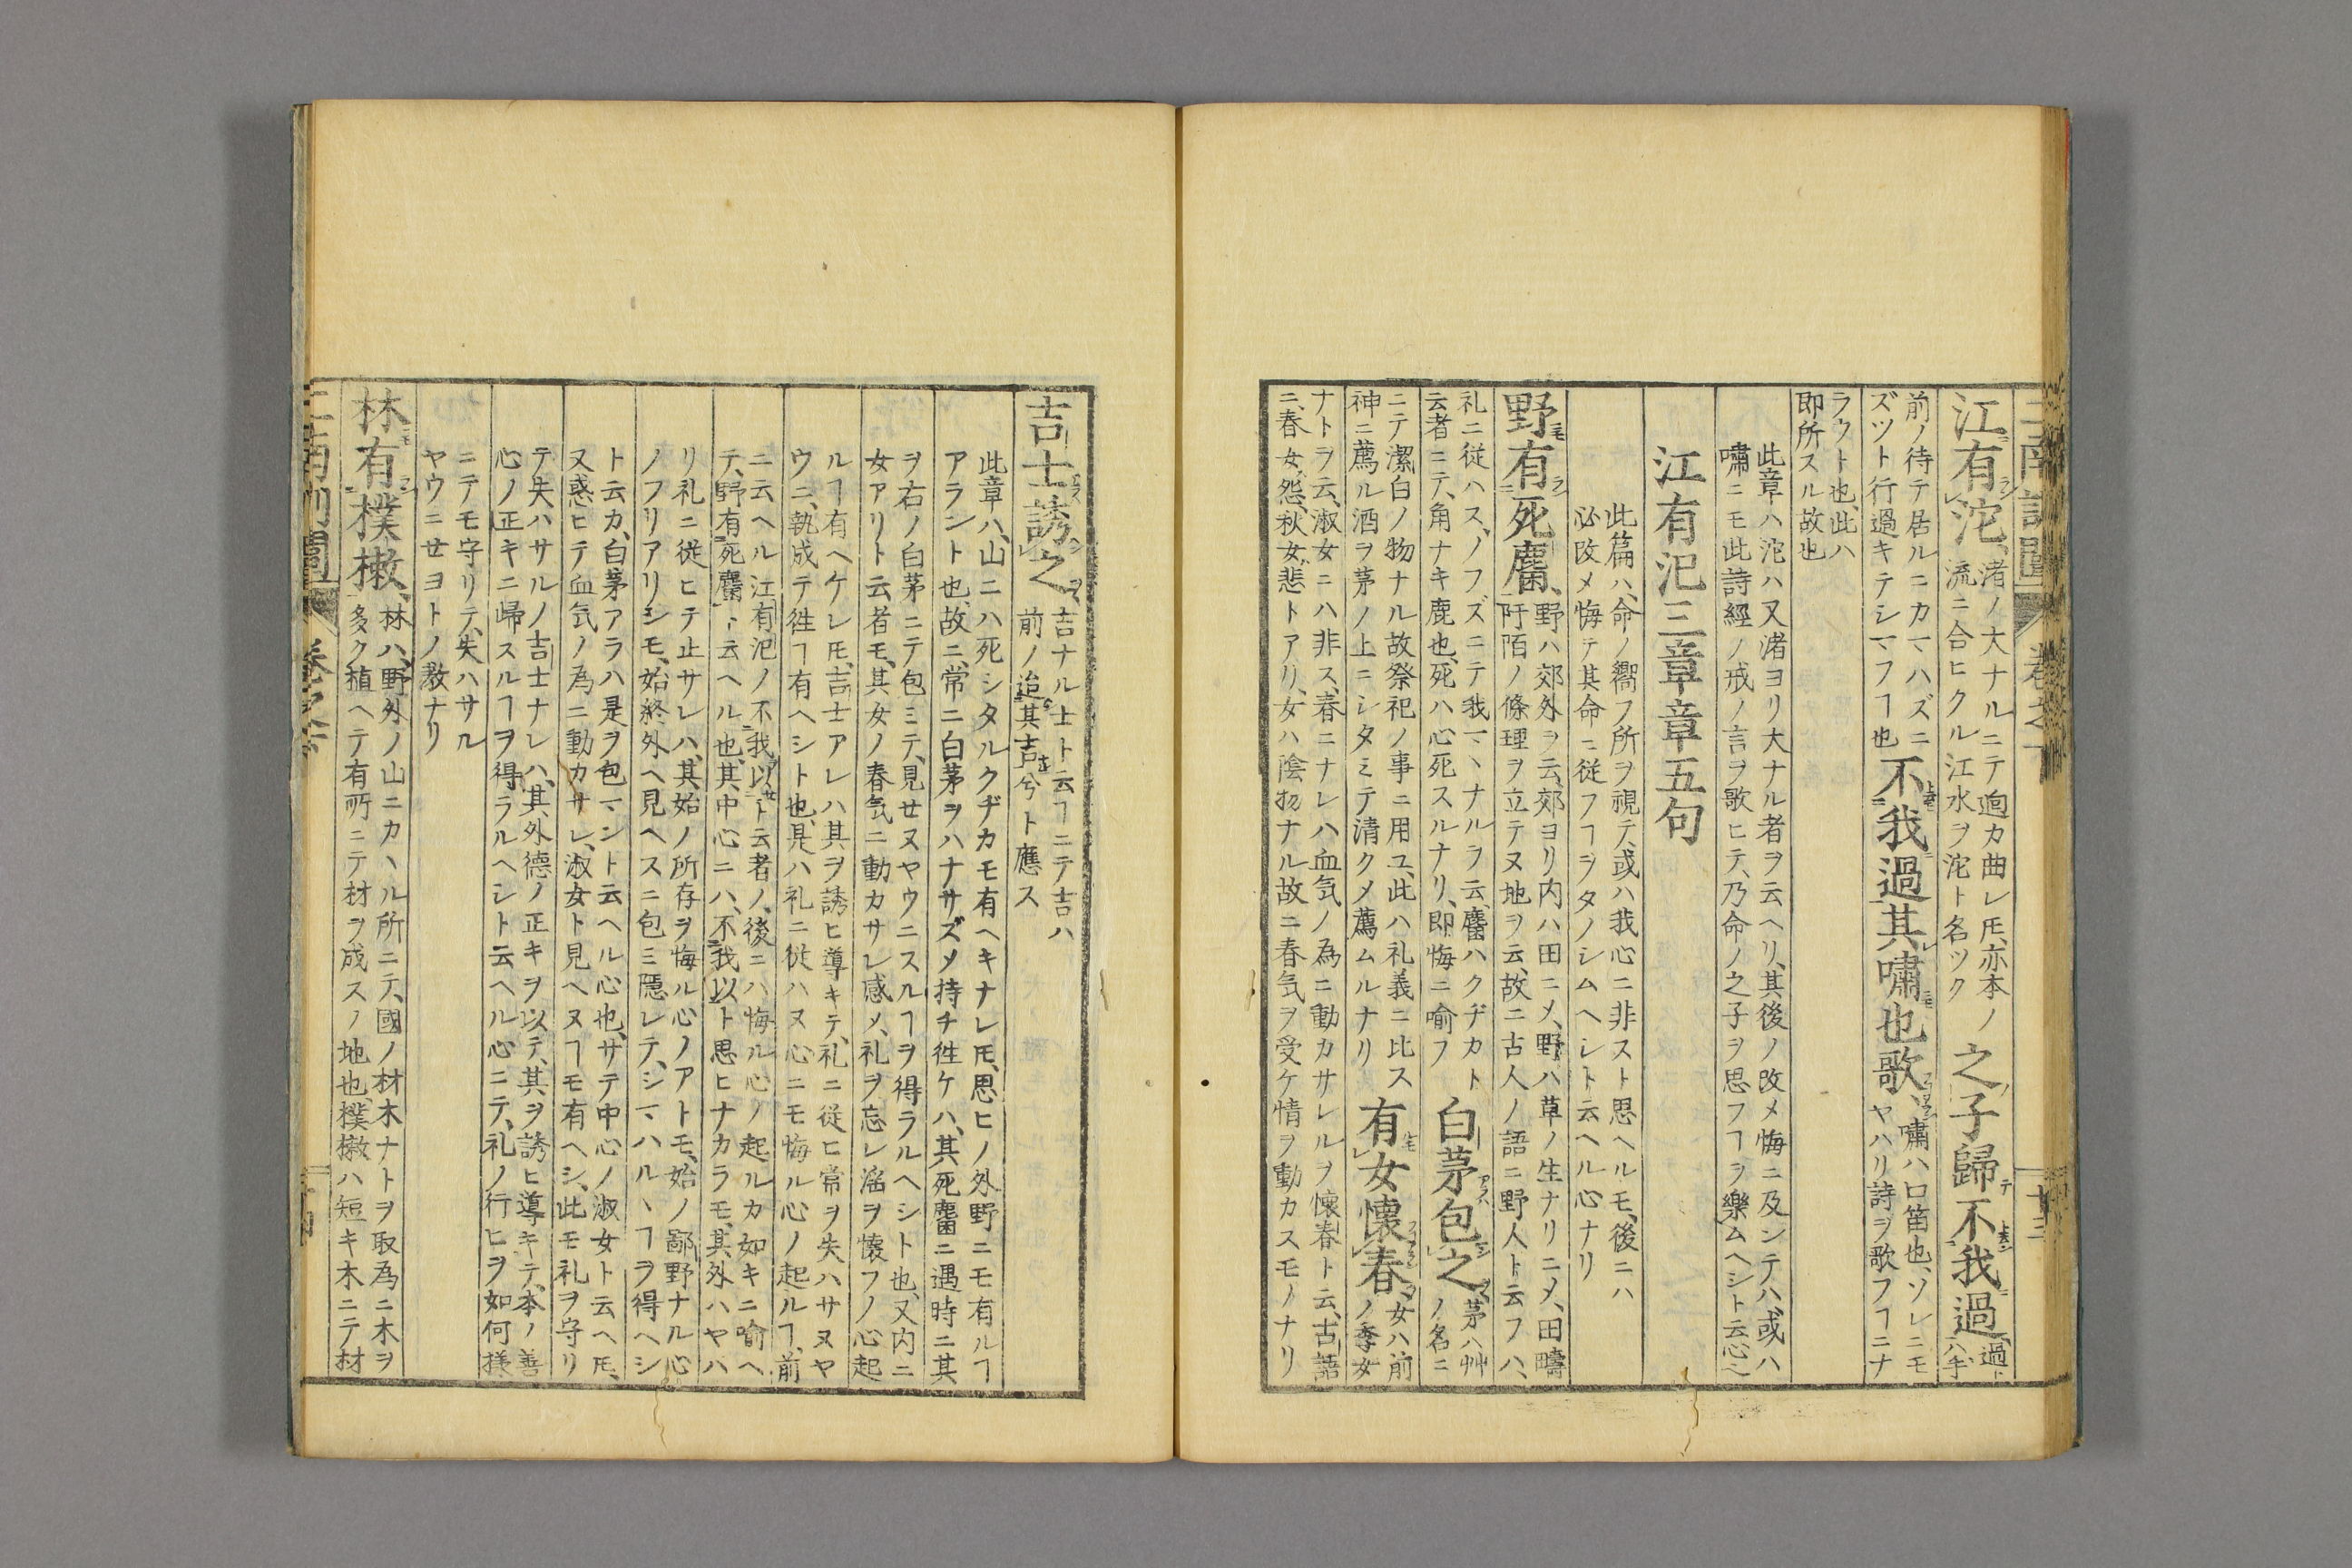 二南訓闡 卷之下 十三
江有沱、渚ノ大ナルニテ廻カ曲レ𪜈、亦本ノ
流ニ合ヒクル江水ヲ沱ト名ツク
之子歸不我過、過ト
ハ手
前ノ待テ居ルニカマハズニ
ズツト行過キテシマフヿ也
不我過其嘯也歌、嘯ハ口笛也、ソレニモ
ヤハリ詩ヲ歌フヿニナ
ラウト也、此ハ
即所スル故也
此章ハ沱ハ又渚ヨリ大ナル者ヲ云ヘリ、其後ノ改メ悔ニ及ンテハ、或ハ
嘯ニモ此詩經ノ戒ノ言ヲ歌ヒテ、乃命ノ之子ヲ思フヿヲ樂ムヘシト云心也
江有汜三章章五句
此篇ハ、命ノ嚮フ所ヲ視テ、或ハ我心ニ非スト思ヘルモ、後ニハ
必改メ悔テ其命ニ從フヿヲタノシムヘシト云ヘル心ナリ
野有死麕、野ハ郊外ヲ云、郊ヨリ内ハ田ニメ、野ハ草ノ生ナリニメ、田疇
阡陌ノ條理ヲ立テヌ地ヲ云、故ニ古人ノ語ニ野人ト云フハ、
礼ニ従ハス、ノフズニテ我マヽナルヲ云、麕ハクヂカト
云者ニテ、角ナキ鹿也、死ハ心死スルナリ、即悔ニ喩フ
白茅包之、茅ハ艸
ノ名ニ
ニテ潔白ノ物ナル故祭祀ノ事ニ用ユ、此ハ礼義ニ比ス
神ニ薦ル酒ヲ茅ノ上ニシタミテ清クメ薦ムルナリ
有女懷春、女ハ前
ノ季女
ナトヲ云、淑女ニハ非ス、春ニナレハ血気ノ為ニ動カサレルヲ懷春ト云、古語
ニ、春女怨、秋女悲トアリ、女ハ陰物ナル故ニ春気ヲ受ケ情ヲ動カスモノナリ
吉士誘之、吉ナル士ト云ヿニテ吉ハ
前ノ迨其吉兮ト應ス
此章ハ、山ニハ死シタルクヂカモ有ヘキナレ𪜈、思ヒノ外野ニモ有ルヿ
アラント也、故ニ、常ニ白茅ヲハナサズメ持チ徃ケハ、其死麕ニ遇時ニ其
ヲ右ノ白茅ニテ包ミテ、見せヌヤウニスルヿヲ得ラルヘシト也、又内ニ
女アリト云者モ、其女ノ春気ニ動カサレ感メ、礼ヲ忘レ滛ヲ懷フノ心起
ルヿ有ヘケレ𪜈、吉士アレハ其ヲ誘ヒ導キテ、礼ニ従ヒ常ヲ失ハサヌヤ
ウニ、執成テ徃ヿ有ヘシト也、是ハ礼ニ従ハヌ心ニモ悔ル心ノ起ルヿ、前
ニ云ヘル江有汜ノ不我以ト云者ノ、後ニハ悔ル心ノ起ルカ如キニ喩ヘ
テ、野有死麕ト云ヘル也、其中心ニハ、不我以ト思ヒナカラモ、其外ハヤハ
リ礼ニ従ヒテ止サレハ、其始ノ所存ヲ悔ル心ノアトモ、始ノ鄙野ナル心
ノフリアリシモ、始終外ヘ見ヘスニ包ミ隱レテ、シマハルヽヿヲ得ヘシ
ト云カ、白茅アラハ是ヲ包マント云ヘル心也、サテ中心ノ淑女ト云ヘ𪜈、
又惑ヒテ血気ノ為ニ動カサレ、淑女ト見ヘヌヿモ有ヘシ、此モ礼ヲ守リ
テ失ハサルノ吉士ナレハ、其外德ノ正キヲ以テ、其ヲ誘ヒ導キテ、本ノ善
心ノ正キニ歸スルヿヲ得ラルヘシト云ヘル心ニテ、礼ノ行ヒヲ如何樣
ニテモ守リテ、失ハサル
ヤウニせヨトノ教ナリ
林有樸樕、林ハ、野外ノ山ニカヽル所ニテ、國ノ材木ナトヲ取為ニ木ヲ
多ク植ヘテ有所ニテ材ヲ成スノ地也、樸樕ハ短キ木ニテ材
二南訓闡 卷之下 十四